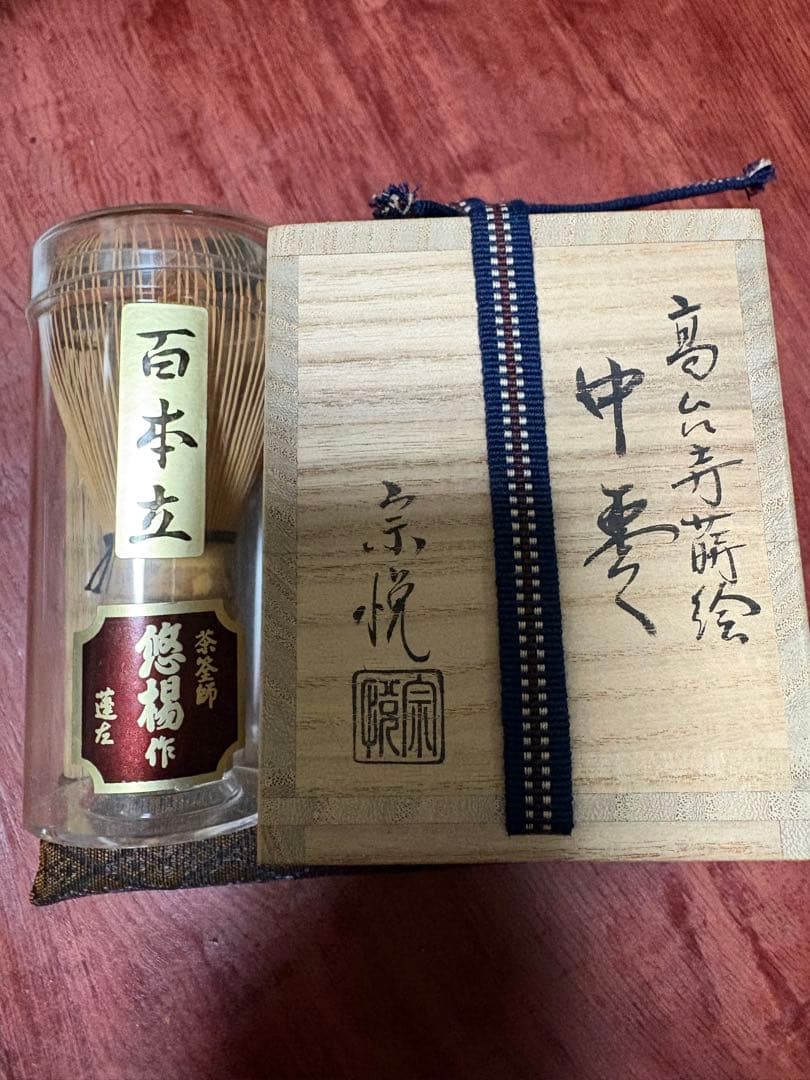 百本立
茶筌師
悠楊作
蓮左
高台寺蒔絵
中棗
宗悦
宗悦